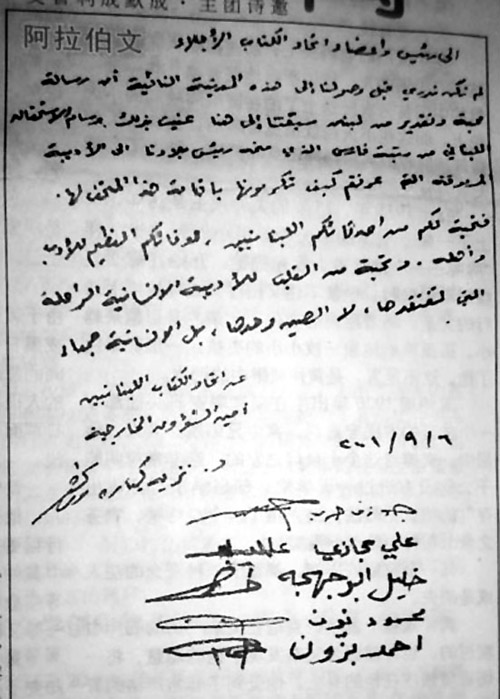 主团诗邀
阿拉伯文
الى رئيس وأعضاء اتحاد الكتاب الأجلاء
لم نكن ندري قبل وصولنا إلى هذه المدينة النائية أن رسالة
محبة وتقدير من لبنان سبقتنا إلى هنا عنيت بذلك وسام الاستحقاق
اللبناني من رتبة فارس الذي منحه رئيس بلادنا الى الأديبة
المرموقة التي عرفتم كيف تكرمونها باقامة هذا المتحف لها.
فتحية لكم من أصدقائكم اللبنانيين، لوفائكم العظيم للأدب
وأهله. وتحية من القلب للأديبة الانسانية الراحلة
التي تفتقدها، لا الصين وحدها، بل الانسانية جمعاء
عن اتحاد الكتاب اللبنانيين
أمين الشؤون الخارجية
٢٠١/٩/٦
د.
علي حجازي
خليل
محمود نون
احمد بزون